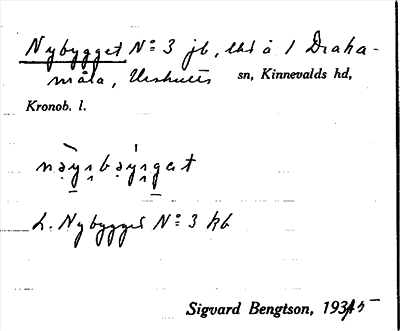 Nybygget No 3 jb, lht å 1 Draka-
måla, Urshults sn, Kinnevalds hd,
Kronob. l.
L. Nybygget No 3 kb
Sigvard Bengtson, 1935